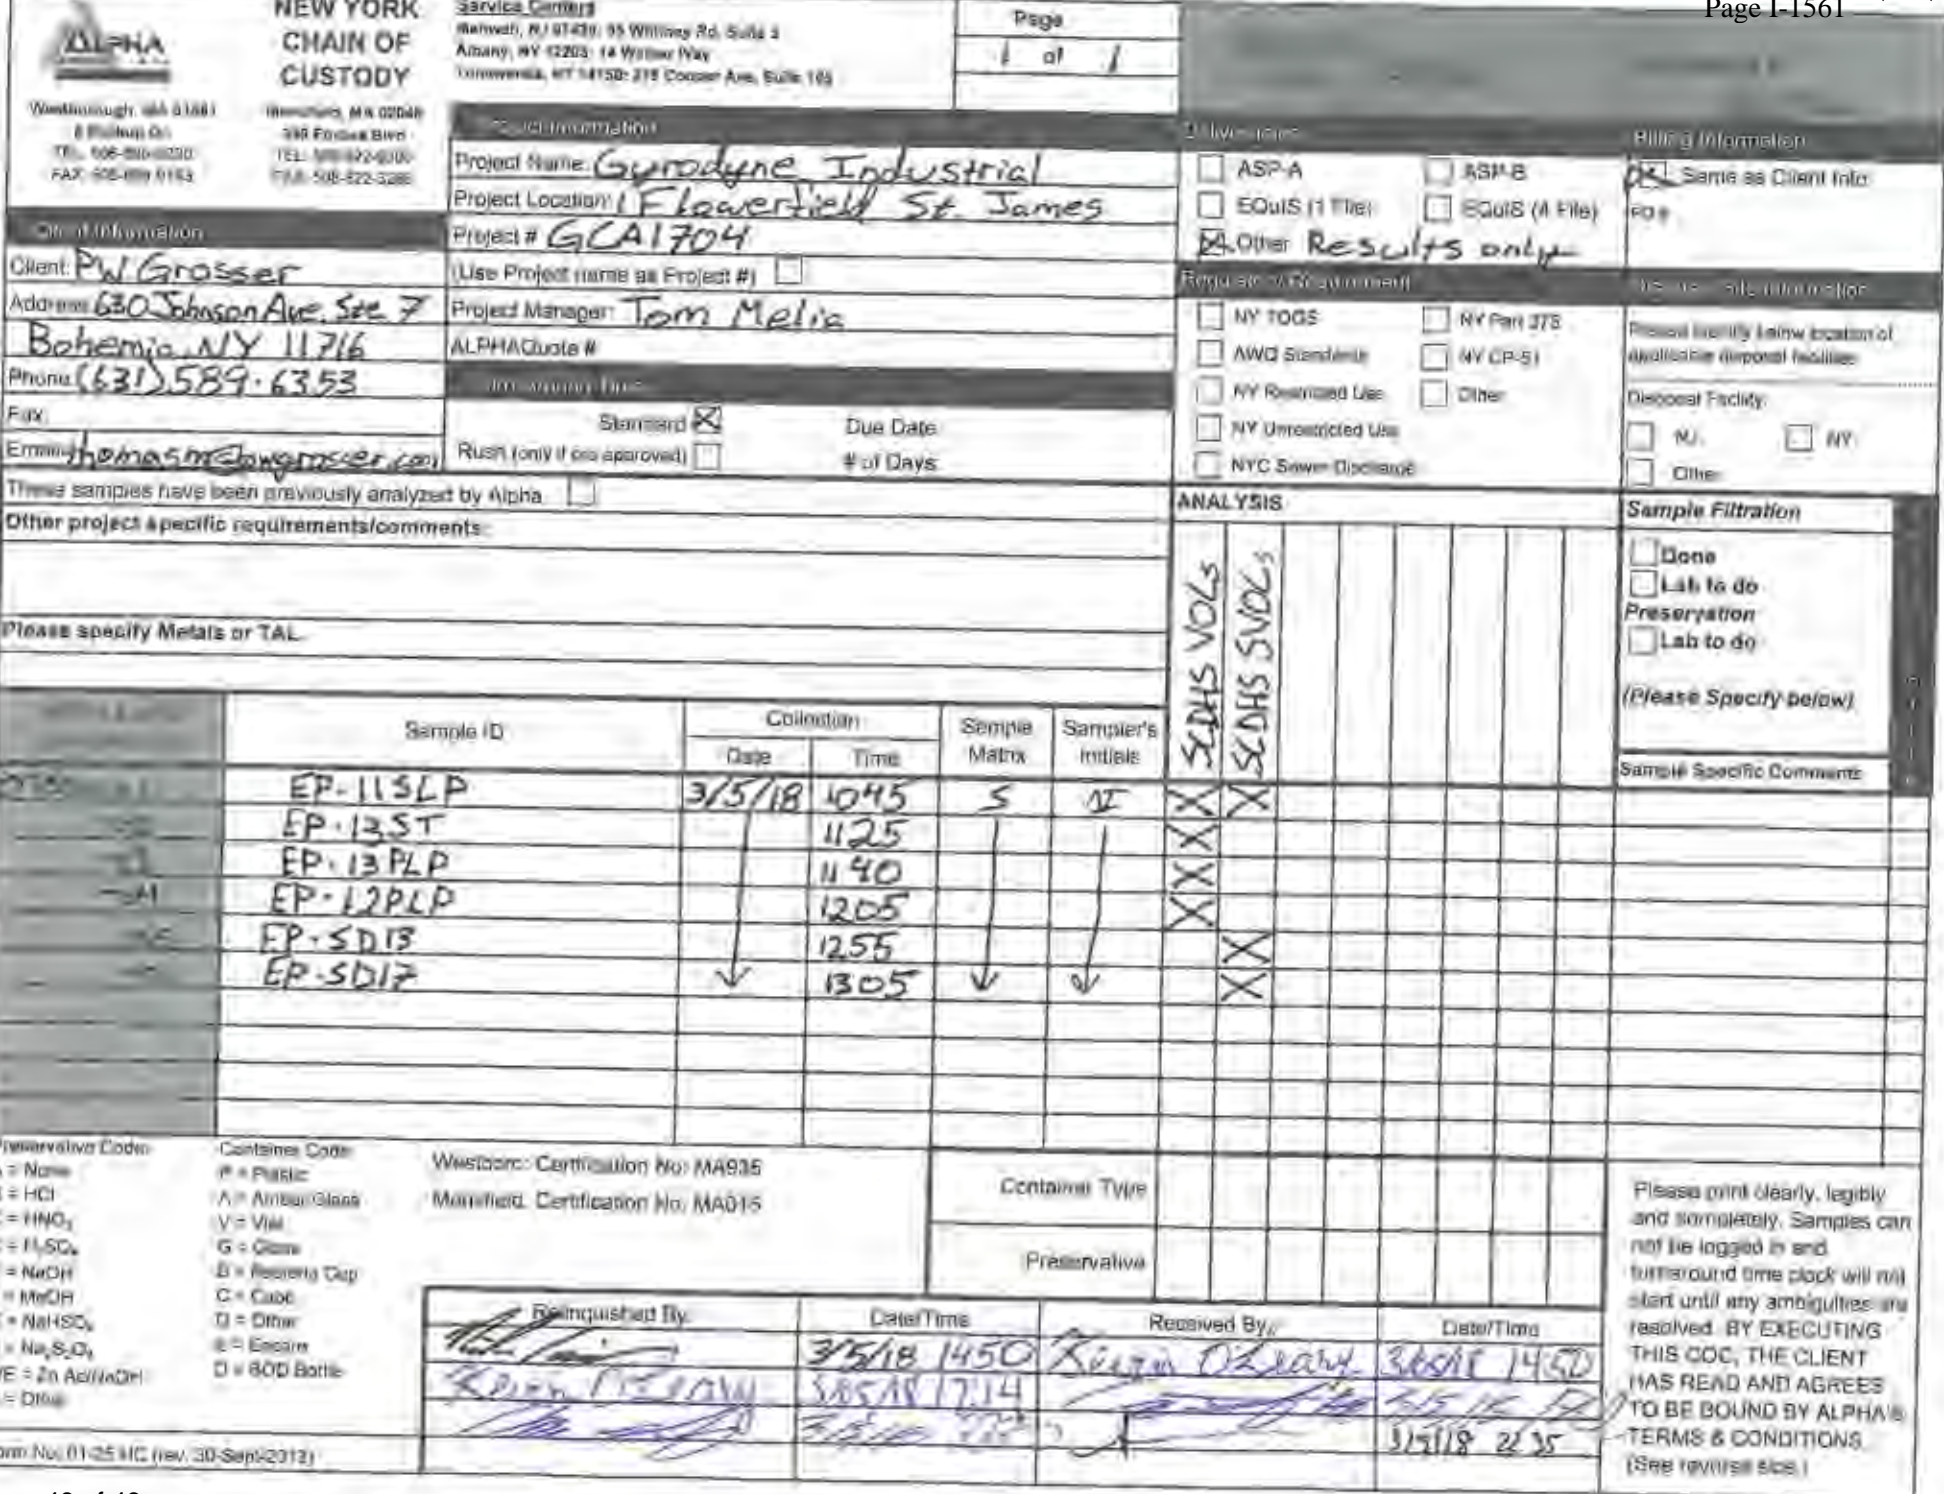 Page I-1561
ALPHA
NEW YORK
CHAIN OF
CUSTODY
Service Centers
Mahwah, NJ 07430: 35 Whitney Rd, Suite 5
Albany, NY 12205: 14 Walker Way
Tonawanda, NY 14150: 275 Cooper Ave, Suite 105
Page
1 of 1
Westborough, MA 01581
8 Walkup Dr.
TEL: 508-898-9220
FAX: 508-898-9193
Mansfield, MA 02048
320 Forbes Blvd
TEL: 508-822-9300
FAX: 508-822-3288
Project Information
Project Name: Gyrodyne Industrial
Project Location: 1 Flowerfield St. James
Project # GCA1704
(Use Project name as Project #)
Project Manager: Tom Melia
ALPHAQuote #
Client Information
Client: PW Grosser
Address: 630 Johnson Ave, Ste 7
Bohemia, NY 11716
Phone: (631) 589-6353
Fax:
Email: thomasm@pwgrosser.com
Standard X Due Date:
Rush (only if pre approved) # of Days:
Deliverables
ASP-A ASP-B
EQuIS (1 File) EQuIS (4 File)
Other Results only
Billing Information
Same as Client Info
PO #
Regulatory Requirement
NY TOGS NY Part 375
AWQ Standards NY CP-51
NY Restricted Use Other
NY Unrestricted Use
NYC Sewer Discharge
Disposal Site Information
Please identify below location of
applicable disposal facilities.
Disposal Facility:
NJ NY
Other:
These samples have been previously analyzed by Alpha
Other project specific requirements/comments:
Please specify Metals or TAL.
ANALYSIS
SCDHS VOCs
SCDHS SVOCs
Sample Filtration
Done
Lab to do
Preservation
Lab to do
(Please Specify below)
Sample Specific Comments
Sample ID Collection Sample Matrix Sampler's Initials
Date Time
EP-11SLP 3/5/18 1045 S X X
EP-13ST 1125 X
EP-13PLP 1140 X
EP-12PLP 1205 X
EP-SD13 1255 X
EP-SD17 1305 X
Preservative Code:
= None
= HCl
= HNO3
= H2SO4
= NaOH
= MeOH
= NaHSO4
= Na2S2O3
E = Zn Ac/NaOH
= Other
Container Code
P = Plastic
A = Amber Glass
V = Vial
G = Glass
B = Bacteria Cup
C = Cube
O = Other
E = Encore
D = BOD Bottle
Westboro: Certification No: MA935
Mansfield: Certification No: MA015
Container Type
Preservative
Relinquished By: Date/Time Received By: Date/Time
3/5/18 1450 O'Leary 1450
1714
3/5/18 2235
Please print clearly, legibly
and completely. Samples can
not be logged in and
turnaround time clock will not
start until any ambiguities are
resolved. BY EXECUTING
THIS COC, THE CLIENT
HAS READ AND AGREES
TO BE BOUND BY ALPHA'S
TERMS & CONDITIONS.
(See reverse side.)
Form No: 01-25 HC (rev. 30-Sept-2013)